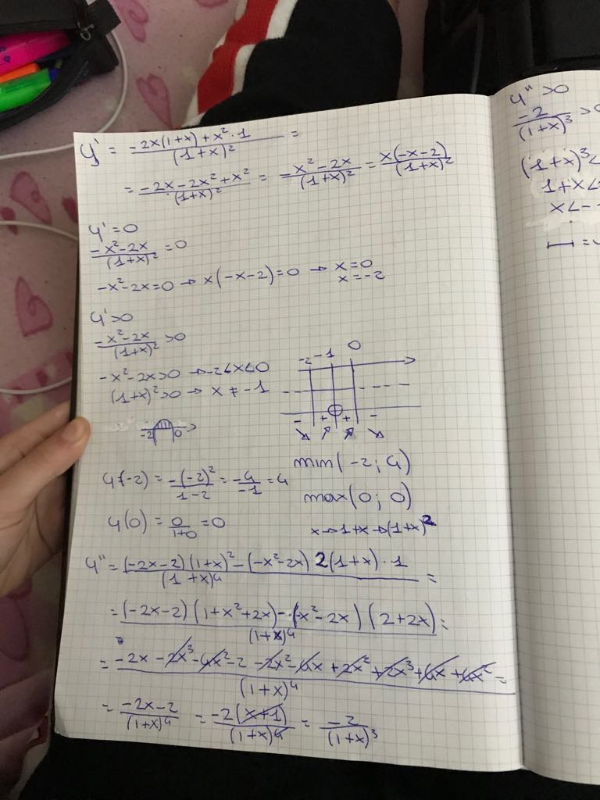 y' = (-2x(1+x) + x² · 1)/(1+x)² =
= (-2x - 2x² + x²)/(1+x)² = (-x² - 2x)/(1+x)² = x(-x-2)/(1+x)²
y' = 0
(-x² - 2x)/(1+x)² = 0
-x² - 2x = 0 → x(-x-2) = 0 → x = 0
x = -2
y' > 0
(-x² - 2x)/(1+x)² > 0
-x² - 2x > 0 → -2<x<0
(1+x)² > 0 → x ≠ -1
-2 0
-2 -1 0
- + + -
min(-2; 4)
max(0; 0)
y(-2) = -(-2)²/(1-2) = -4/-1 = 4
y(0) = 0/(1+0) = 0
x → 1+x → (1+x)²
y'' = ((-2x-2)(1+x)² - (-x²-2x) 2(1+x) · 1)/(1+x)⁴ =
= ((-2x-2)(1+x²+2x) - (-x²-2x)(2+2x))/(1+x)⁴ =
= (-2x - 2x³ - 4x² - 2 - 2x² - 4x + 2x² + 2x³ + 4x + 4x²)/(1+x)⁴ =
= (-2x-2)/(1+x)⁴ = -2(x+1)/(1+x)⁴ = -2/(1+x)³
y'' > 0
-2/(1+x)³ > 0
(1+x)³ <
1+x <
x < -